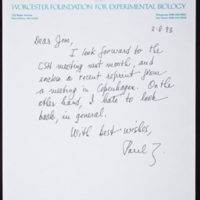 WORCESTER FOUNDATION FOR EXPERIMENTAL BIOLOGY
2-8-93
Dear Jim,
I look forward to the
CSH meeting next month, and
enclose a recent reprint from
a meeting in Copenhagen. On the
other hand, I hate to look
back, in general.
With best wishes,
Paul Z.